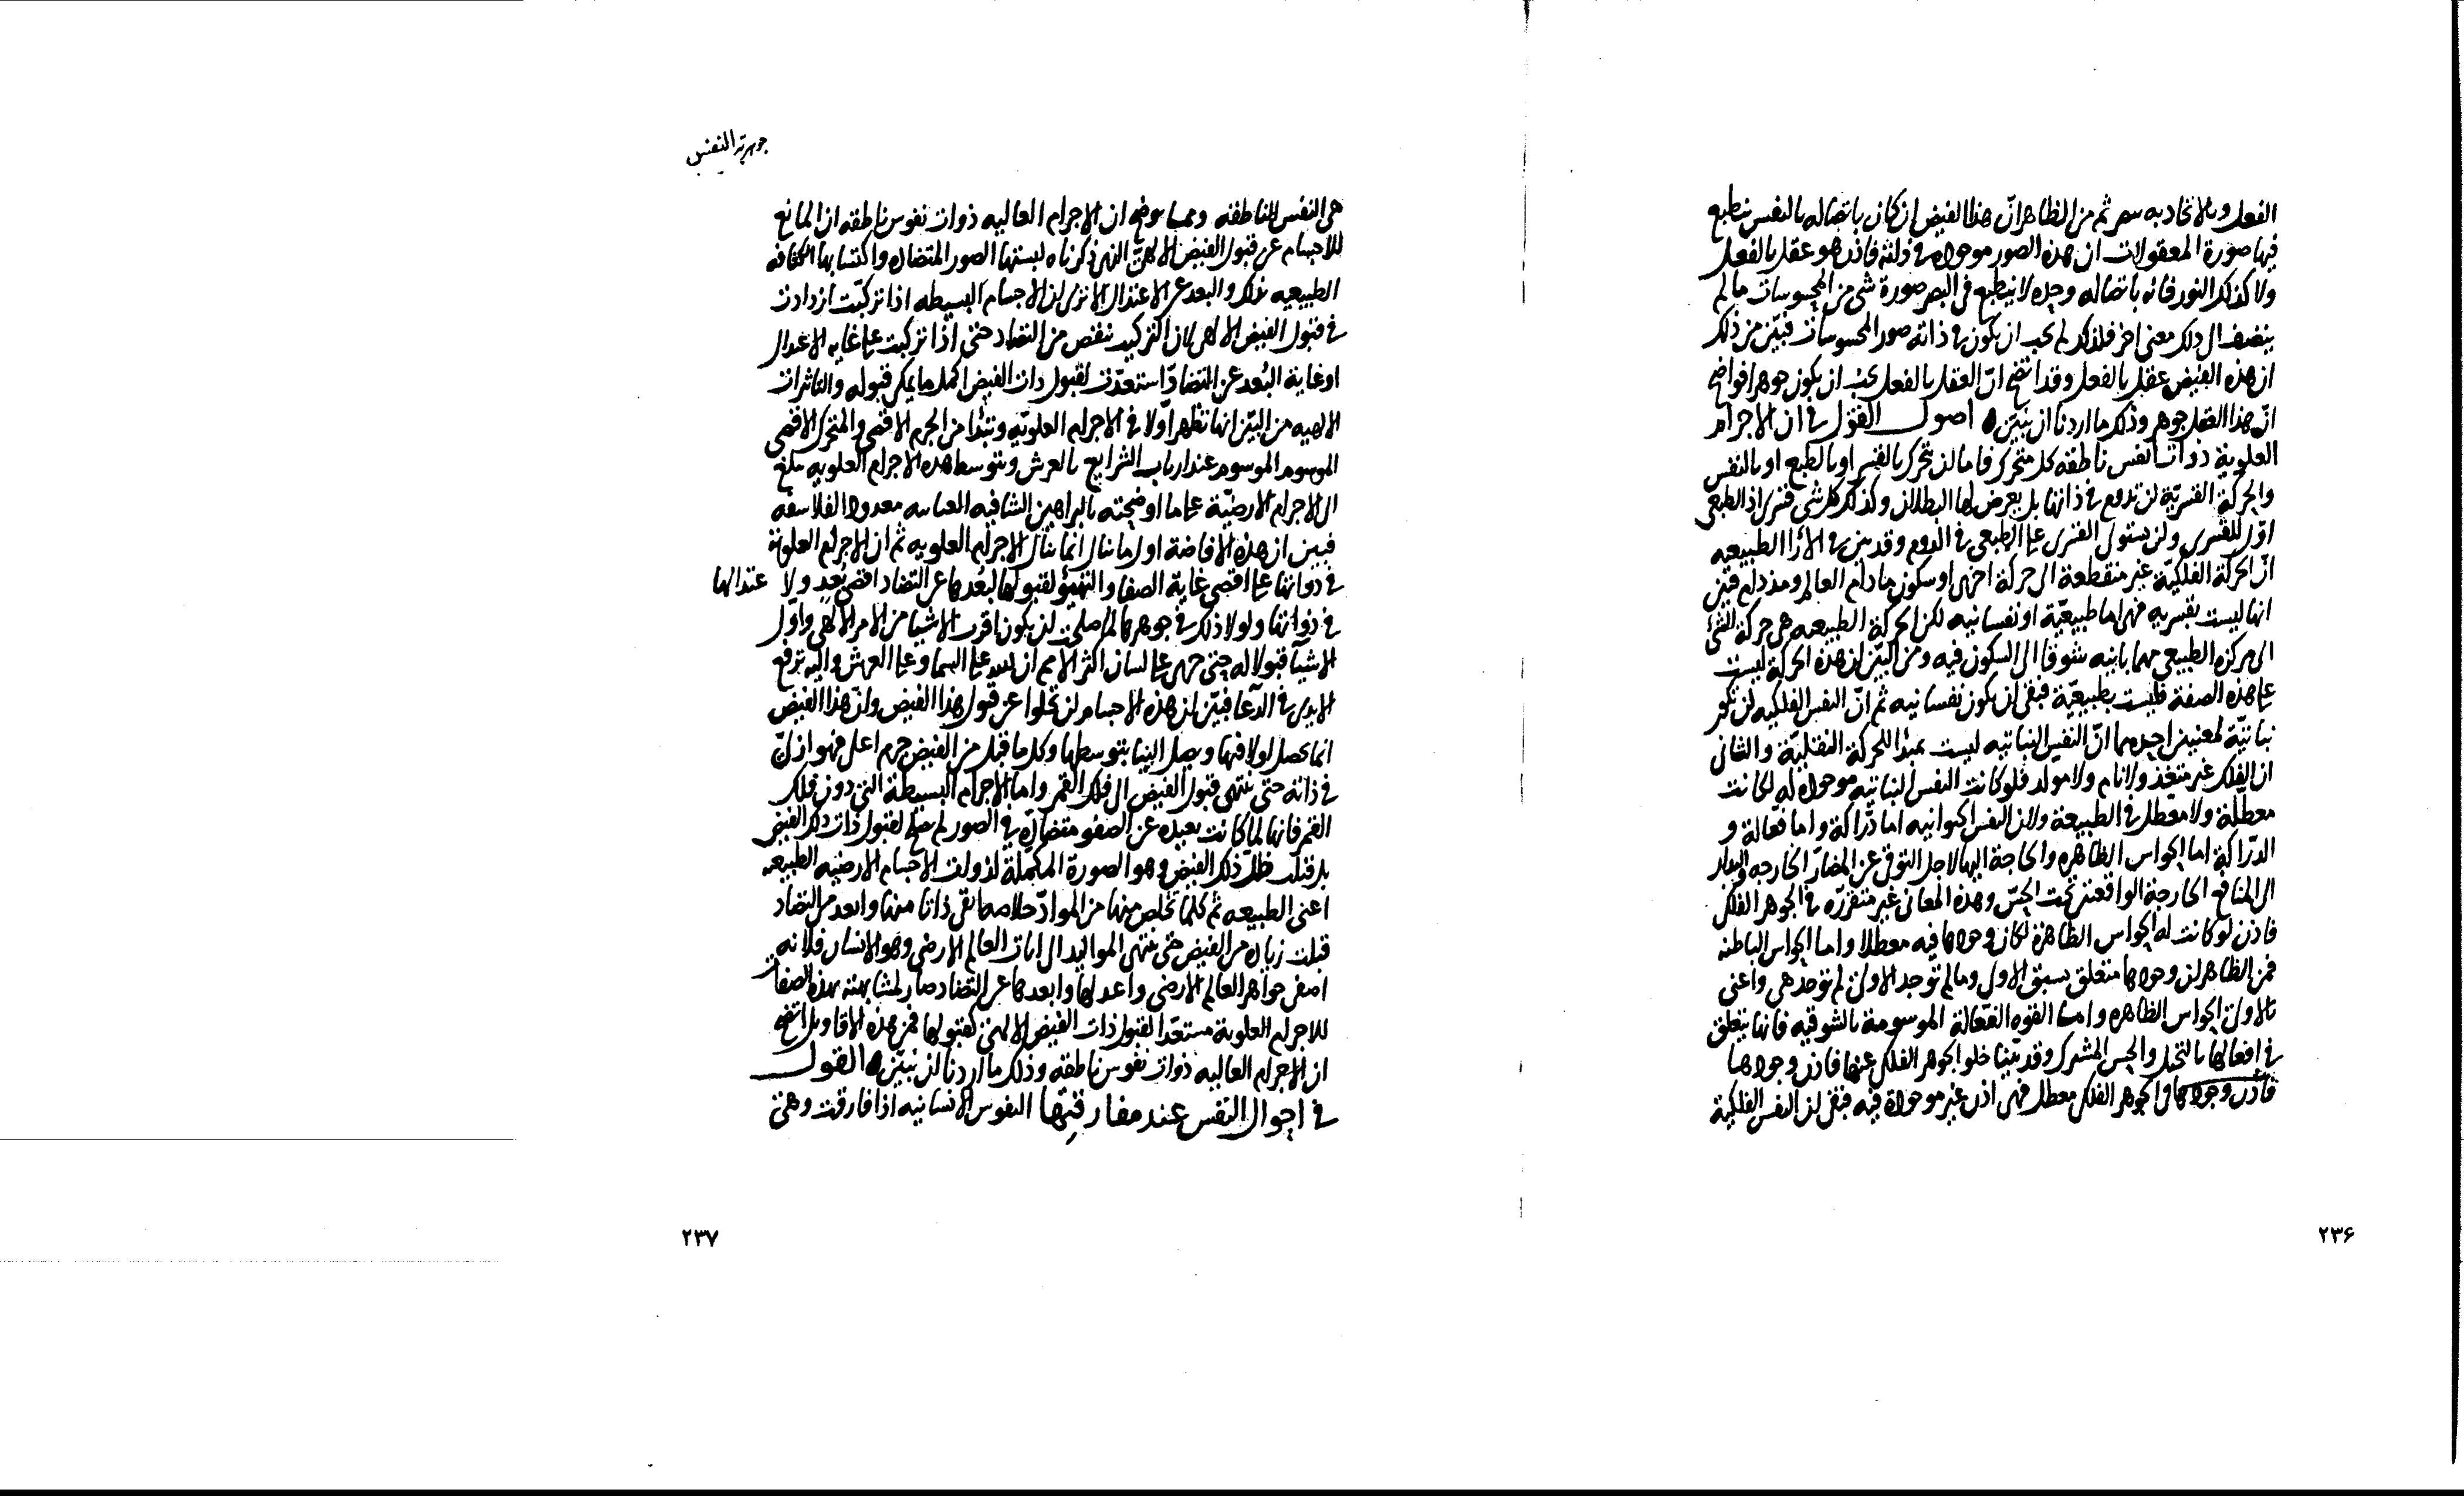 الفعل وبالاتحاد به ثم من الظاهر انّ هذا الفيض ان كان باتصاله بالنفس ينطبع
فيها صورة المعقولات ان هذه الصور موجوده فى ذاته فاذن هو عقل بالفعل
ولا كذلك النور فانه باتصاله وحده لا ينطبع فى البصر صورة شى من المحسوسات ما لم
ينضف الى ذلك معنى اخر فلذلك لم يجب ان يكون فى ذاته صور المحسوسات فبيّن من ذلك
ان هذه الفيض عقل بالفعل وقد اتضح انّ العقل بالفعل يجب ان يكون جوهرا فواضح
انّ هذا العقل جوهر وذلك ما اردنا ان نبيّن القول فى ان الاجرام
العلوية ذوات انفس ناطقه كل متحرك فاما ان يتحرك بالقسر او بالطبع او بالنفس
والحركة القسريّة لن تدوم فى ذاتها بل يعرض لها البطلان وكذلك كل شى قسرى اذ الطبعى
اوّل للقسرى ولن يستولى القسرى على الطبعى فى الدوم وقد بين فى الآرا الطبيعيه
انّ الحركة الفلكيّة غير منقطعة الى حركة اخرى او سكون ما دام العالم ومذ دام فبيّن
انها ليست بقسريه فهى اما طبيعيّة او نفسانيه لكن الحركة الطبيعيه هى حركة الشئ
الى مركزه الطبيعى شوقا الى السكون فيه ومن البيّن ان هذه الحركة ليست
على هذه الصفة فليست بطبيعيّة فبقى ان يكون نفسانيه ثم انّ النفس الفلكيه لن تكون
نباتيّة لمعنيين احدهما انّ النفس النباتيه ليست بمبدا للحركة النقليّة والثانى
ان الفلك غير متغذ ولا نام ولا مولد فلو كانت النفس النباتيه موجوده له لكانت
معطّلة ولا معطل فى الطبيعة ولان النفس الحيوانيه اما درّاكة واما فعالة و
الدرّاكة اما الحواس الظاهره والحاجة اليها لاجل التوقى عن المضارّ الخارجه
الى المنافع الخارجة الواقعتين تحت الحسّ وهذه المعانى غير متقرّره فى الجوهر الفلكى
فاذن لو كانت له الحواس الظاهرة لكان وجودها فيه معطلا واما الحواس الباطنه
فمن الظاهر ان وجودها متعلق بسبق الاول وما لم توجد الاولى لم توجد هى واعنى
بالاولى الحواس الظاهره واما القوه الفعّالة الموسومة بالشوقيه فانها يتعلق
فى افعالها بالتخيل والحس المشترك وقد بيّنا خلو الجوهر الفلكى عنها فاذن وجودها
فاذن وجودها فى الجوهر الفلكى معطل فهى اذن غير موجودة فيه فبقى ان النفس الفلكية
٢٣۶
جوهرية النفس
هى النفس الناطقه ومما يوضح ان الاجرام العاليه ذوات نفوس ناطقه ان المانع
للاجسام عن قبول الفيض الالهىّ الذى ذكرناه لبستها الصور المتضاده واكتسابها الكثافه
الطبيعيه بذلك والبعد عن الاعتدال الا ترى ان الاجسام البسيطه اذا تركّبت ازدادت
فى قبول الفيض الالهى لان التركيب ينقص من التضاد حتى اذا تركبت على غايه الاعتدال
او غاية البُعد عن المتضادّ استعدّت لقبول ذات الفيض اكمل ما يمكن قبوله والتاثيرات
الالهيه من البيّن انها تظهر اوّلا فى الاجرام العلويّه وتبتدأ من الجرم الاقصى والمتحرك الاقصى
الموسوم عند ارباب الشرايع بالعرش وبتوسط هذه الاجرام العلويه يبلغ
الى الاجرام الارضيّة على ما اوضحته بالبراهين الشافيه الفلاسفه
فبين ان هذه الافاضة اول ما ينال انما ينال الاجرام العلويه ثم ان الاجرام العلويّة
فى ذواتها على اقصى غاية الصفا والتهيؤ لقبولها لبُعدها عن التضاد اقصى بُعد ولاعتدالها
فى ذواتها ولولا ذلك فى جوهرها لما صلحت لان يكون اقرب الاشيا من الامر الالهى واوّل
الاشيآ قبولا له حتى جرى على لسان اكثر الامم ان الله على السما وعلى العرش واليه ترفع
الايدى فى الدعا فبيّن ان هذه الاجسام لن تخلوا عن قبول هذا الفيض وانّ هذا الفيض
انما يحصل اولا فيها ويصل الينا بتوسطها وكل ما قبل من الفيض جرم اعلى فهو ازلىّ
فى ذاته حتى ينتهى قبول الفيض الى فلك القمر واما الاجرام البسيطة التى دون فلك
القمر فانها لما كانت بعيده عن الصفو متضادّة فى الصور لم تصلح لقبول ذات ذلك الفيض
بل قبلت ظلّ ذلك الفيض وهو الصورة المكملة لذوات الاجسام الارضيه الطبيعيه
اعنى الطبيعه ثم كلما تخلص منها من الموادّ خلاصا نقى ذاتا منها وابعد من التضاد
قبلت زياده من الفيض حتى ينتهى المواليد الى العالم الارضى وهو الانسان فلانه
اصفى جواهر العالم الارضى واعدلها وابعدها عن التضاد صار لمشابهته بهذه الصفات
للاجرام العلوية مستعدّا لقبول ذات الفيض الالهى كقبولها فمن هذه الاقاويل اتضح
ان الاجرام العاليه ذوات نفوس ناطقه وذلك ما اردنا ان نبيّن القول
فى احوال النفس عند مفارقتها النفوس الانسانيه اذا فارقت وهى
٢٣٧